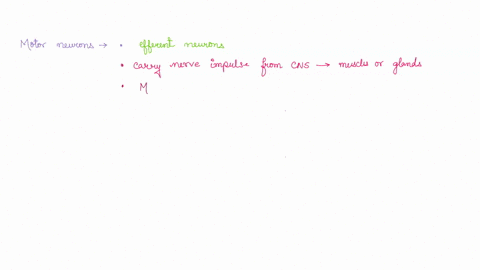 Motor neurons → • efferent neurons
• carry nerve impulse from CNS → muscles or glands
• M